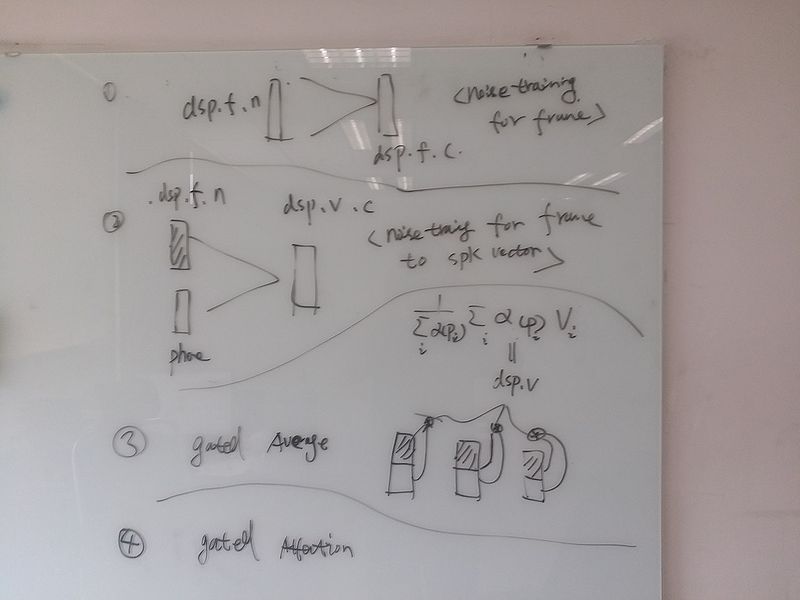 ①
dsp.f.n
<noise training
for frame>
dsp.f.c.
②
.dsp.f.n
dsp.v.c
<noise traig for frame
to spk vector>
phone
1/∑_i α(p_i) ∑_i α(p_i) V_i
||
dsp.v
③ gated Average
④ gated Attention